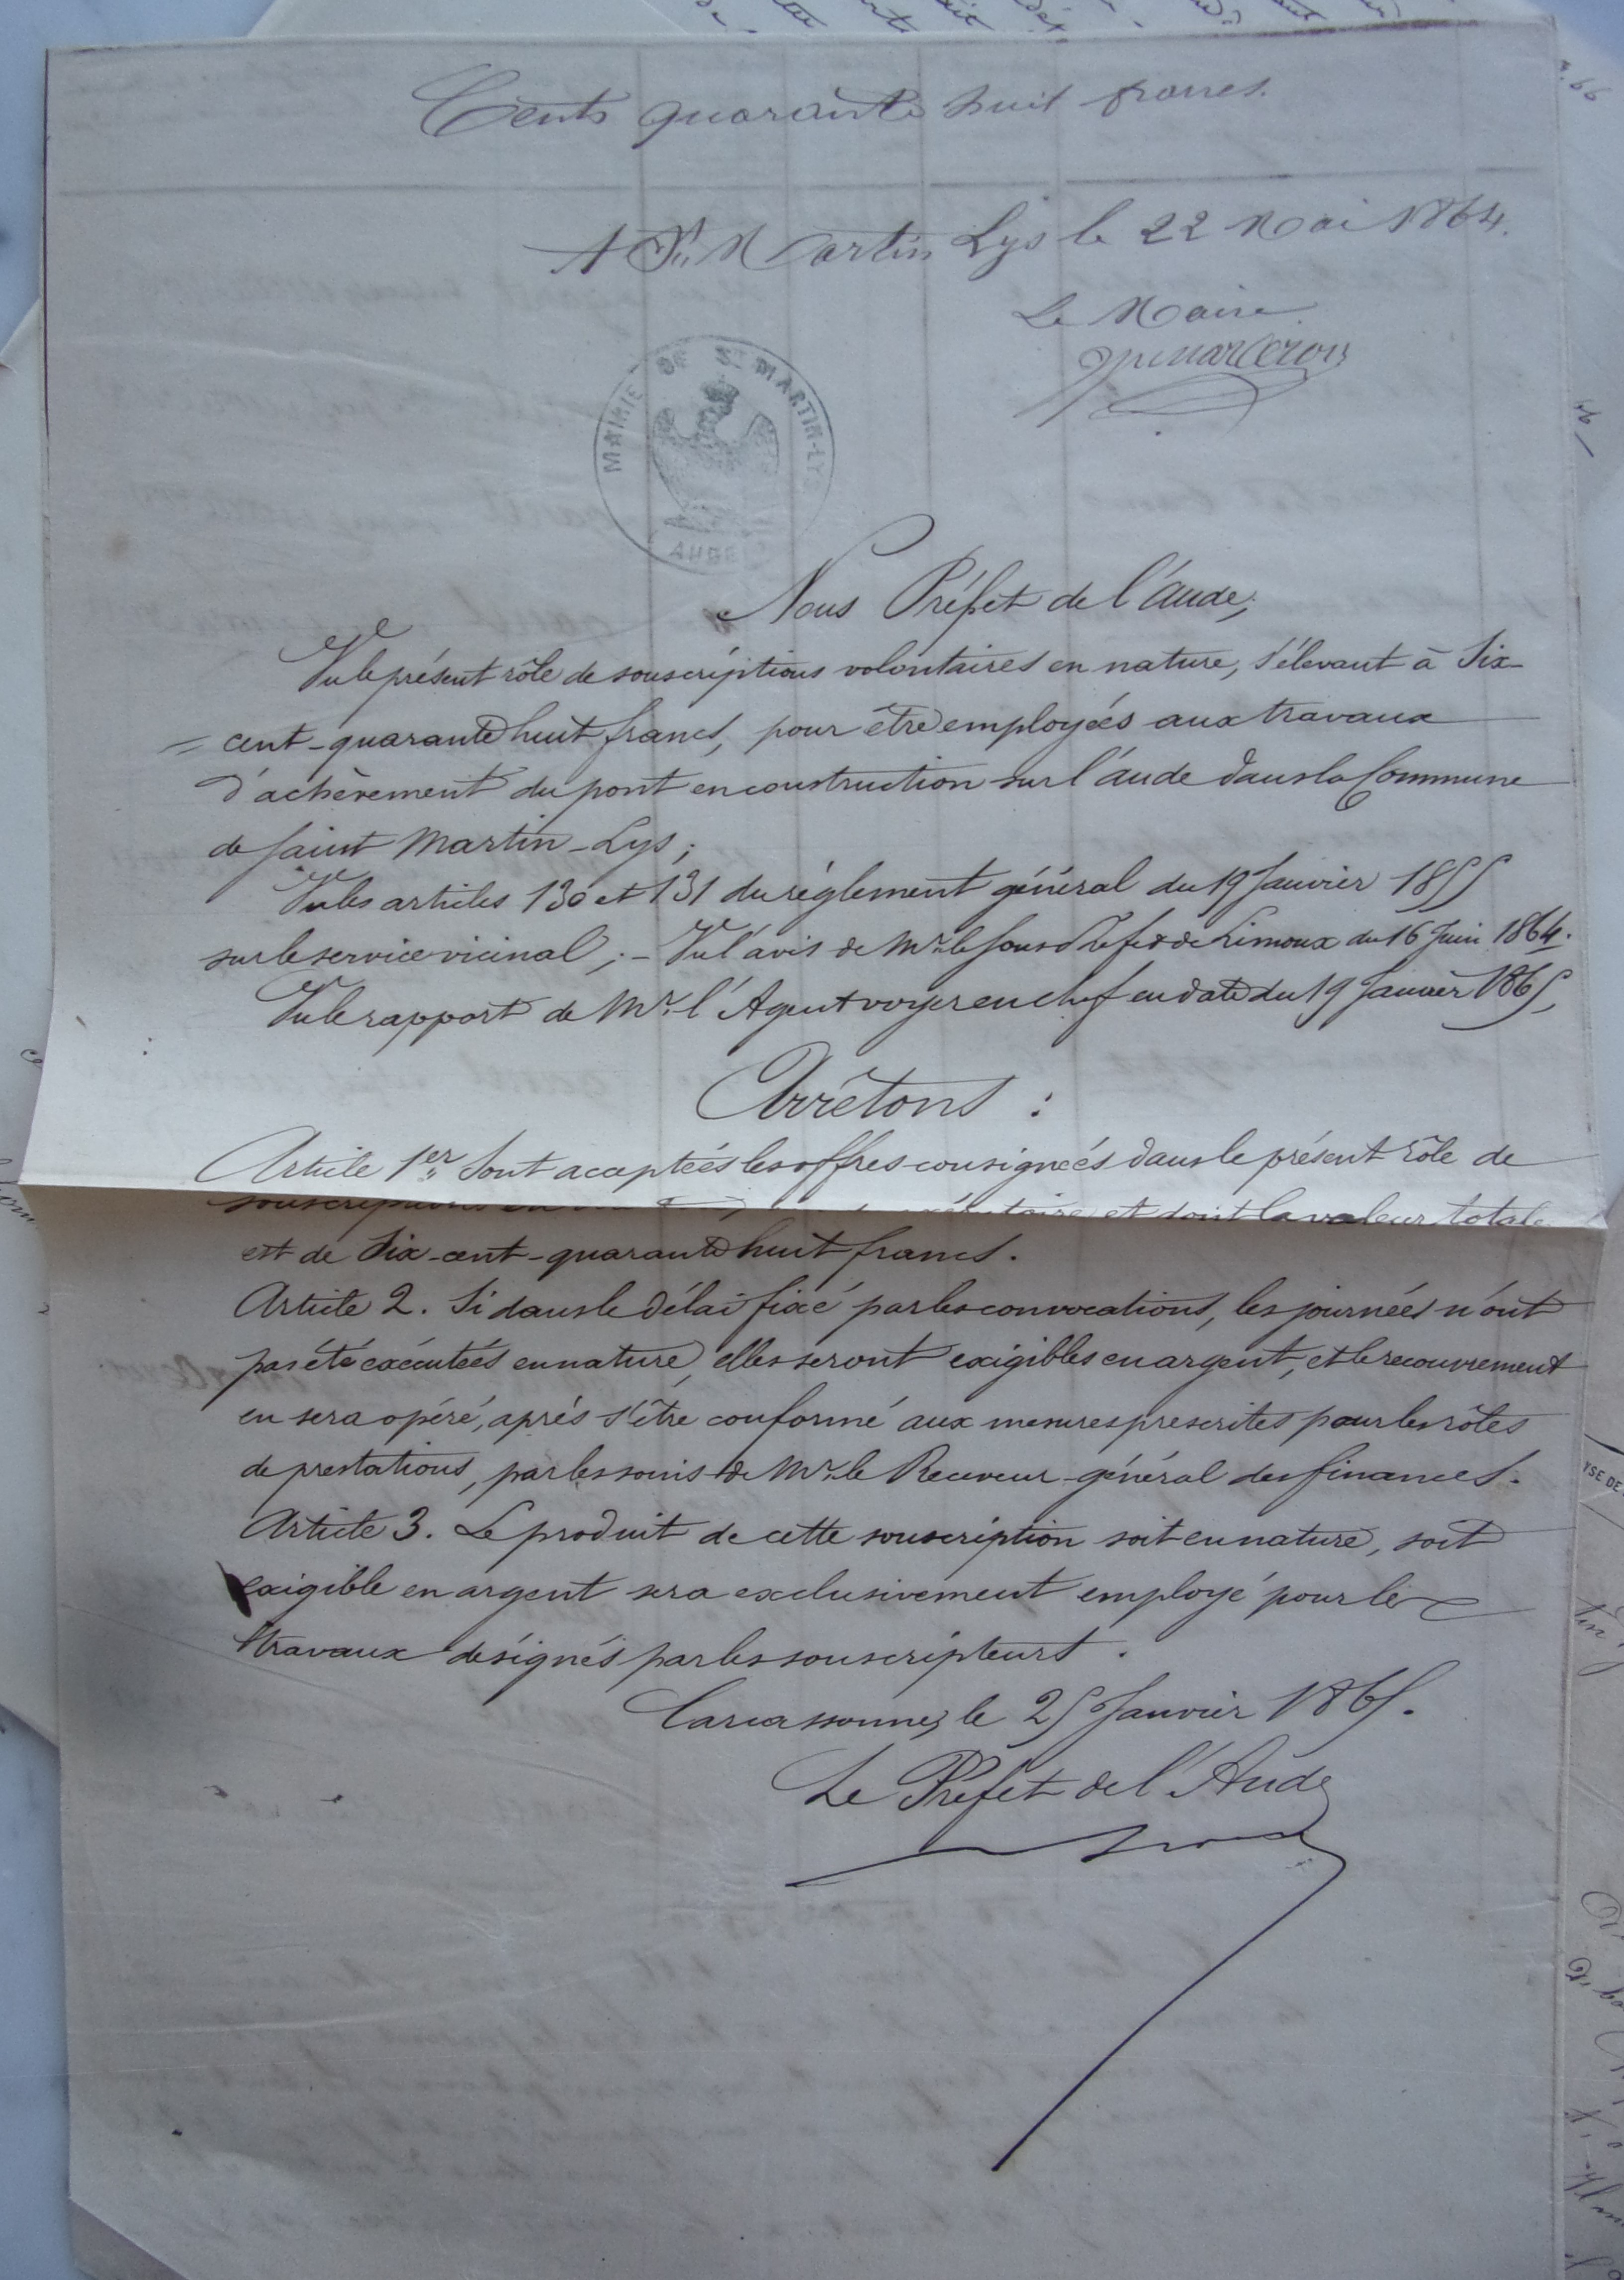 Cents quarante huit francs.
A St. Martin Lys le 22 Mai 1864.
Le Maire
MAIRIE DE ST MARTIN-LYS
AUDE
Nous Préfet de l'aude,
Vu le présent rôle de souscriptions volontaires en nature, s'élevant à Six
= cent-quarante huit francs, pour être employées aux travaux
d'achèvement du pont en construction sur l'aude dans la Commune
de Saint Martin-Lys;
Vu les articles 130 et 131 du règlement général du 19 Janvier 1855
sur le service vicinal; - Vu l'avis de Mr. le Sous Préfet de Limoux du 16 Juin 1864.
Vu le rapport de Mr. l'Agent voyer en chef en date du 19 Janvier 1865,
Arrêtons :
Article 1er. Sont acceptées les offres consignées dans le présent rôle de
souscriptions en et dont la valeur totale
est de Six-cent-quarante huit francs.
Article 2. Si dans le délai fixé par les convocations, les journées n'ont
pas été exécutées en nature, elles seront exigibles en argent, et le recouvrement
en sera opéré, après s'être conformé aux mesures prescrites pour les rôles
de prestations, par les soins de Mr. le Receveur-général des finances.
Article 3. Le produit de cette souscription soit en nature, soit
exigible en argent sera exclusivement employé pour les
travaux désignés par les souscripteurs.
Carcassonne, le 25 Janvier 1865.
Le Préfet de l'Aude